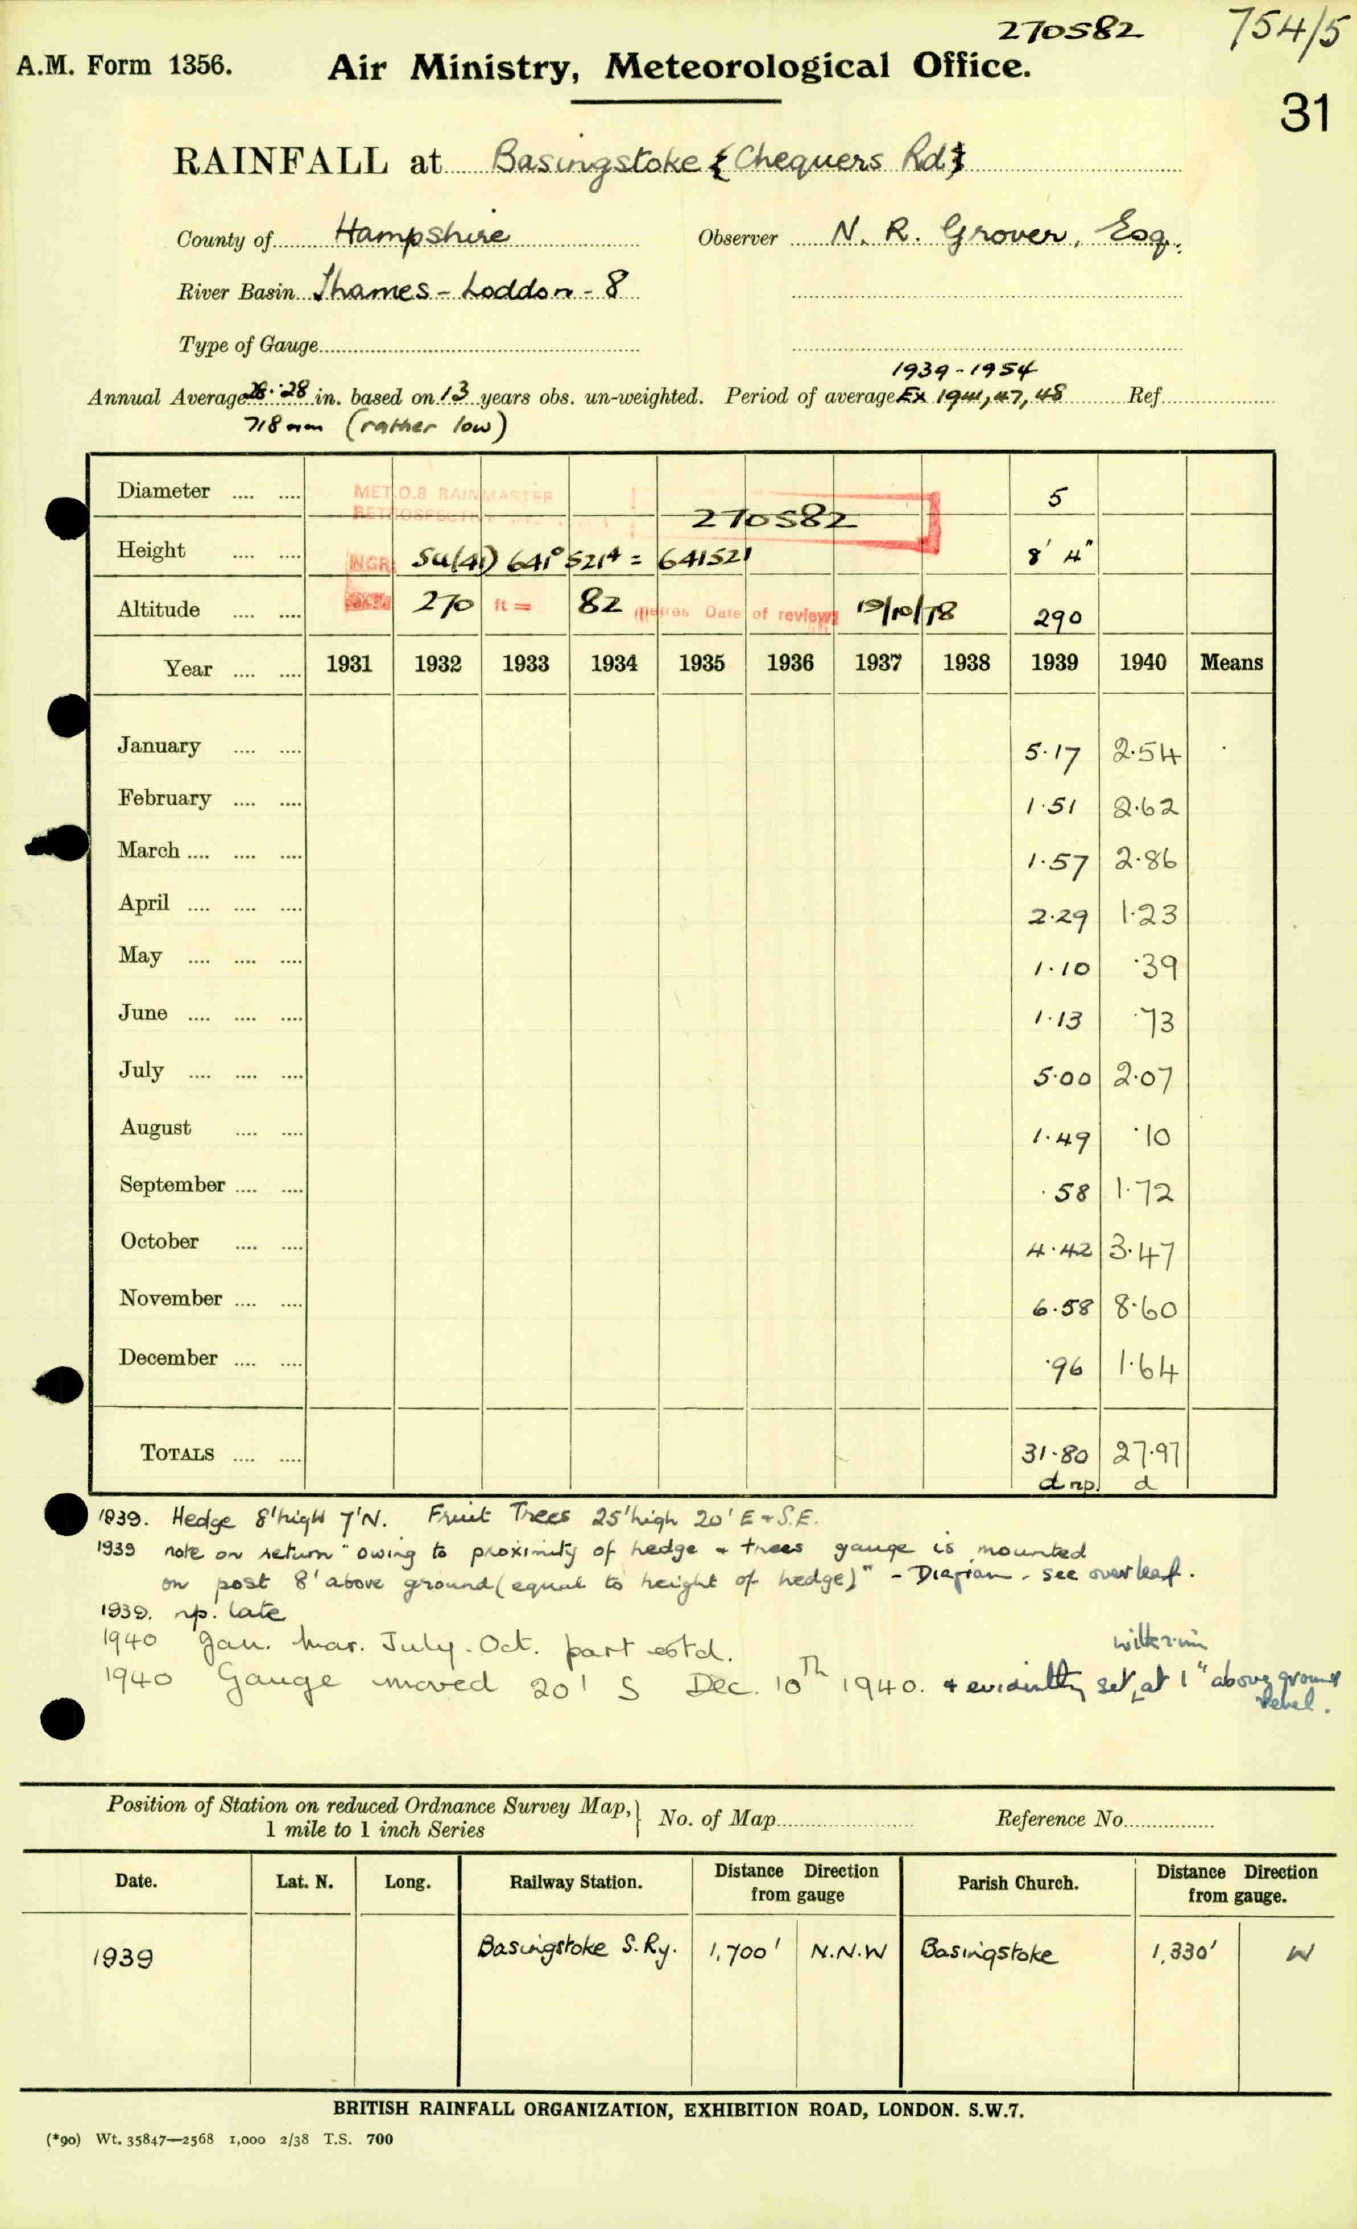 270582 754/5
A.M. Form 1356. Air Ministry, Meteorological Office.
31
RAINFALL at Basingstoke {Chequers Rd}
County of Hampshire Observer N. R. Grover, Esq.
River Basin Thames - Loddon - 8
Type of Gauge
1939-1954
Annual Average 28.28 in. based on 13 years obs. un-weighted. Period of average Ex 1941, 47, 48 Ref.
718 mm (rather low)
Diameter .... .... MET.O.8 RAINMASTER 5
RETROSPECTIVE 270582
Height .... .... NGR SU(41) 641⁰ 521⁴ = 641521 8' 4"
Altitude .... .... 270 ft = 82 metres Date of review 19/10/78 290
Year .... .... 1931 1932 1933 1934 1935 1936 1937 1938 1939 1940 Means
January .... .... 5.17 2.54
February .... .... 1.51 2.62
March .... .... .... 1.57 2.86
April .... .... .... 2.29 1.23
May .... .... .... 1.10 .39
June .... .... .... 1.13 .73
July .... .... .... 5.00 2.07
August .... .... 1.49 .10
September .... .... .58 1.72
October .... .... 4.42 3.47
November .... .... 6.58 8.60
December .... .... .96 1.64
TOTALS .... .... 31.80 27.97
d np. d
1939. Hedge 8' high 7' N. Fruit Trees 25' high 20' E & S.E.
1939 note on return "owing to proximity of hedge & trees gauge is mounted
on post 8' above ground (equal to height of hedge)" - Diagram - see overleaf.
1939. np. late
1940 Jan. Mar. July. Oct. part estd.
1940 Gauge moved 20' S Dec. 10th 1940. & evidently set at 1" above ground
level.
Position of Station on reduced Ordnance Survey Map, } No. of Map Reference No.
1 mile to 1 inch Series
Date. Lat. N. Long. Railway Station. Distance Direction from gauge Parish Church. Distance Direction from gauge.
1939 Basingstoke S.Ry. 1,700' N.N.W Basingstoke 1,330' W
BRITISH RAINFALL ORGANIZATION, EXHIBITION ROAD, LONDON. S.W.7.
(*90) Wt. 35847—2568 1,000 2/38 T.S. 700